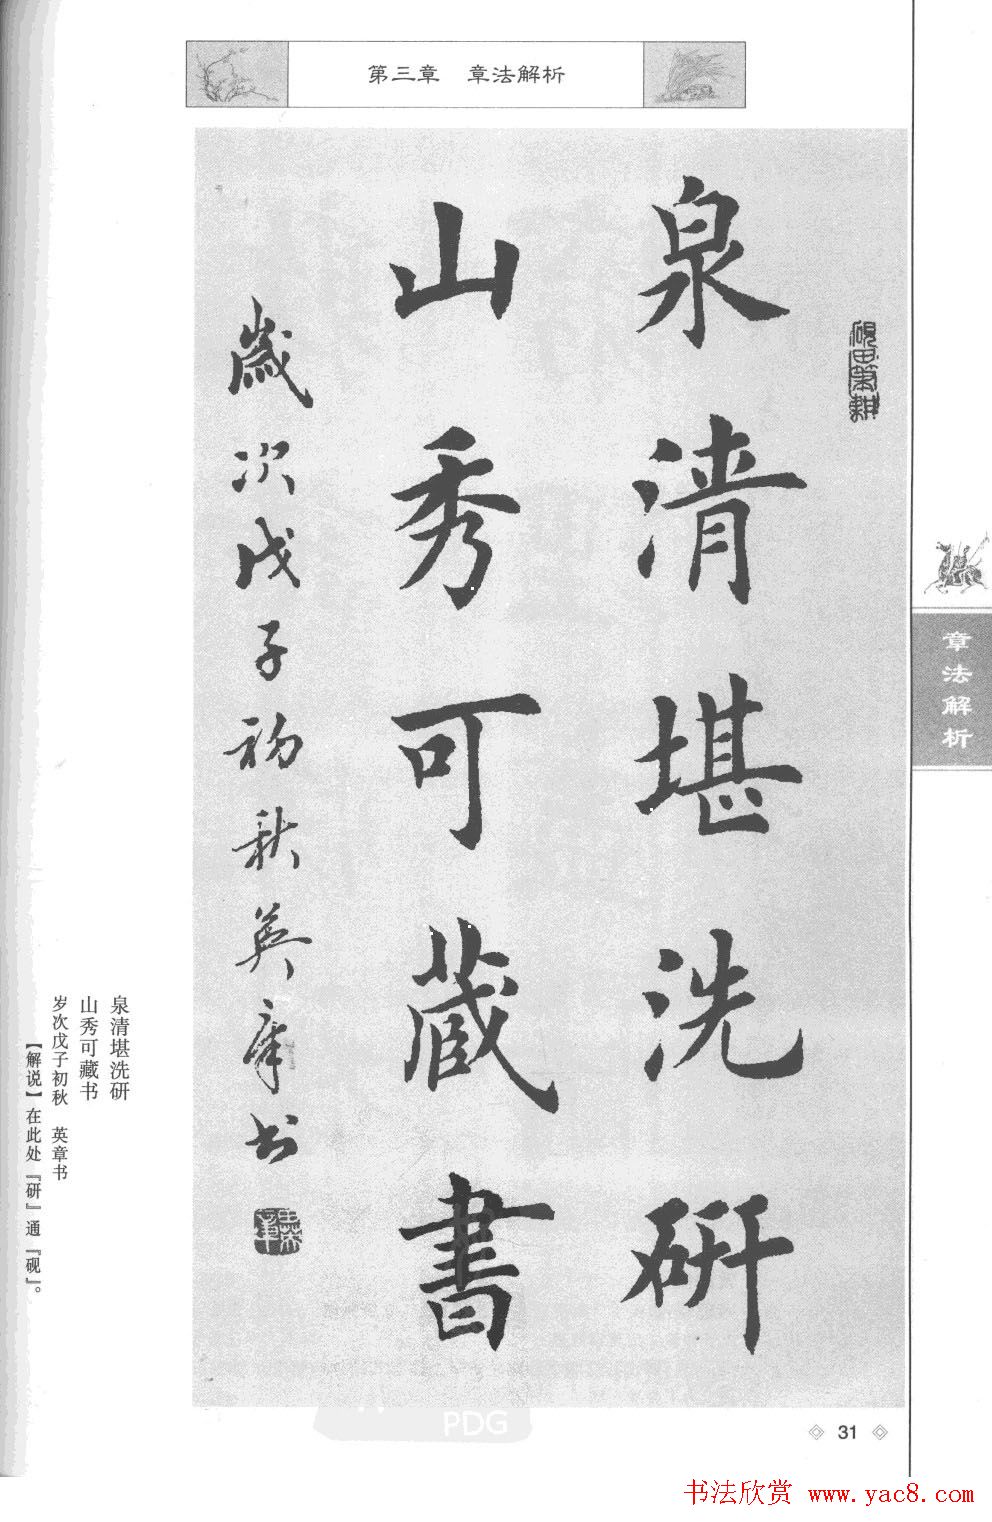 第三章 章法解析
泉清堪洗研
山秀可藏書
歲次戊子初秋英章书
章法解析
泉清堪洗研
山秀可藏书
岁次戊子初秋 英章书
【解说】在此处『研』通『砚』。
31
PDG
书法欣赏 www.yac8.com